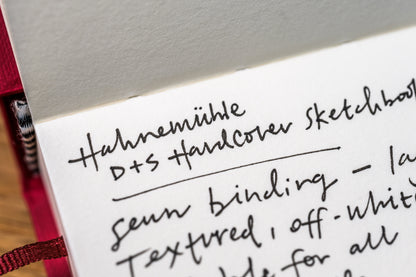 Hahnemühle
D+S Hardcover sketchbook
sewn binding –
Textured, off-white
for all